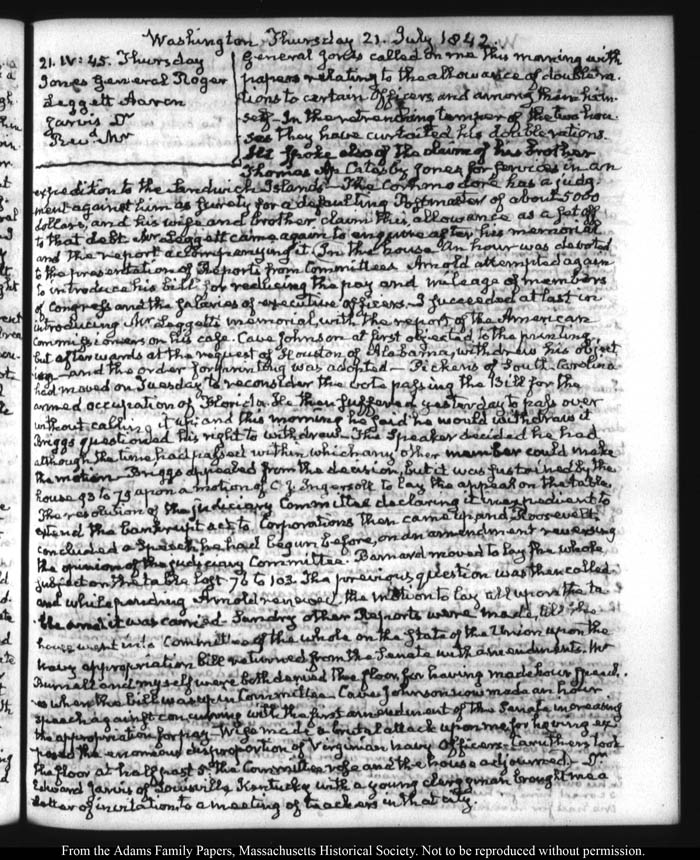 Washington Thursday 21. July 1842.
21. IV: 45. Thursday
Jones General Roger
Leggett Aaron
Jarvis Dr
Revd. Mr
General Jones called on me this morning with
papers relating to the allowance of double ra-
tions to certain Officers, and among them him-
self. In the retrenching temper of the two hou-
ses they have curtailed his double rations.
He spoke also of the claim of his brother
Thomas Ap Catesby Jones for services in an
expedition to the Sandwich Islands. The Commodore has a judg-
ment against him as surety for a defaulting Postmaster of about 5000
dollars, and his wife and brother claim this allowance as a set off
to that debt. Mr Leggett came again to enquire after his memorial
and the report accompanying it. In the house an hour was devoted
to the presentation of Reports from Committees. Arnold attempted again
to introduce his bill for reducing the pay and mileage of members
of Congress and the salaries of executive officers. I succeeded at last in
introducing Mr Leggett's memorial, with the report of the American
Commissioners on his case. Cave Johnson at first objected to the printing,
but afterwards at the request of Houston of Alabama, withdrew his object-
ion and the order for printing was adopted. Pickens of South Carolina
had moved on Tuesday to reconsider the vote passing the Bill for the
armed occupation of Florida. He then suffered yesterday to pass over
without calling it up, and this morning he said he would withdraw it
Briggs questioned his right to withdraw. The Speaker decided he had
although the time had passed within which any other member could make
the motion. Briggs appealed from the decision, but it was sustained by the
house 93 to 73 upon a motion of C. J. Ingersoll to lay the appeal on the table.
The resolution of the judiciary Committee declaring it inexpedient to
extend the bankrupt act to Corporations then came up, and Roosevelt
concluded a Speech he had begun before, on an amendment reversing
the opinion of the judiciary Committee. Barnard moved to lay the whole
subject on the table lost 76 to 103. The previous question was then called
and while pending Arnold renewed the motion to lay all upon the ta-
ble and it was carried. Sundry other Reports were made, till the
house went into Committee of the whole on the state of the Union upon the
Navy appropriation bill returned from the Senate with amendments. Mr
Burnell and myself were both denied the floor for having made hour speech-
es when the bill was up in Committee. Cave Johnson now made an hour
speech against concurring with the first amendment of the Senate increasing
the appropriation for pay. Wise made a brutal attack upon me for having ex-
posed the enormous disproportion of Virginian Navy Officers. Caruthers took
the floor at half past 5. The Committee rose and the house adjourned. Dr
Edward Jarvis of Louisville Kentucky with a young clergyman brought me a
letter of invitation to a meeting of teachers in that city.
From the Adams Family Papers, Massachusetts Historical Society. Not to be reproduced without permission.